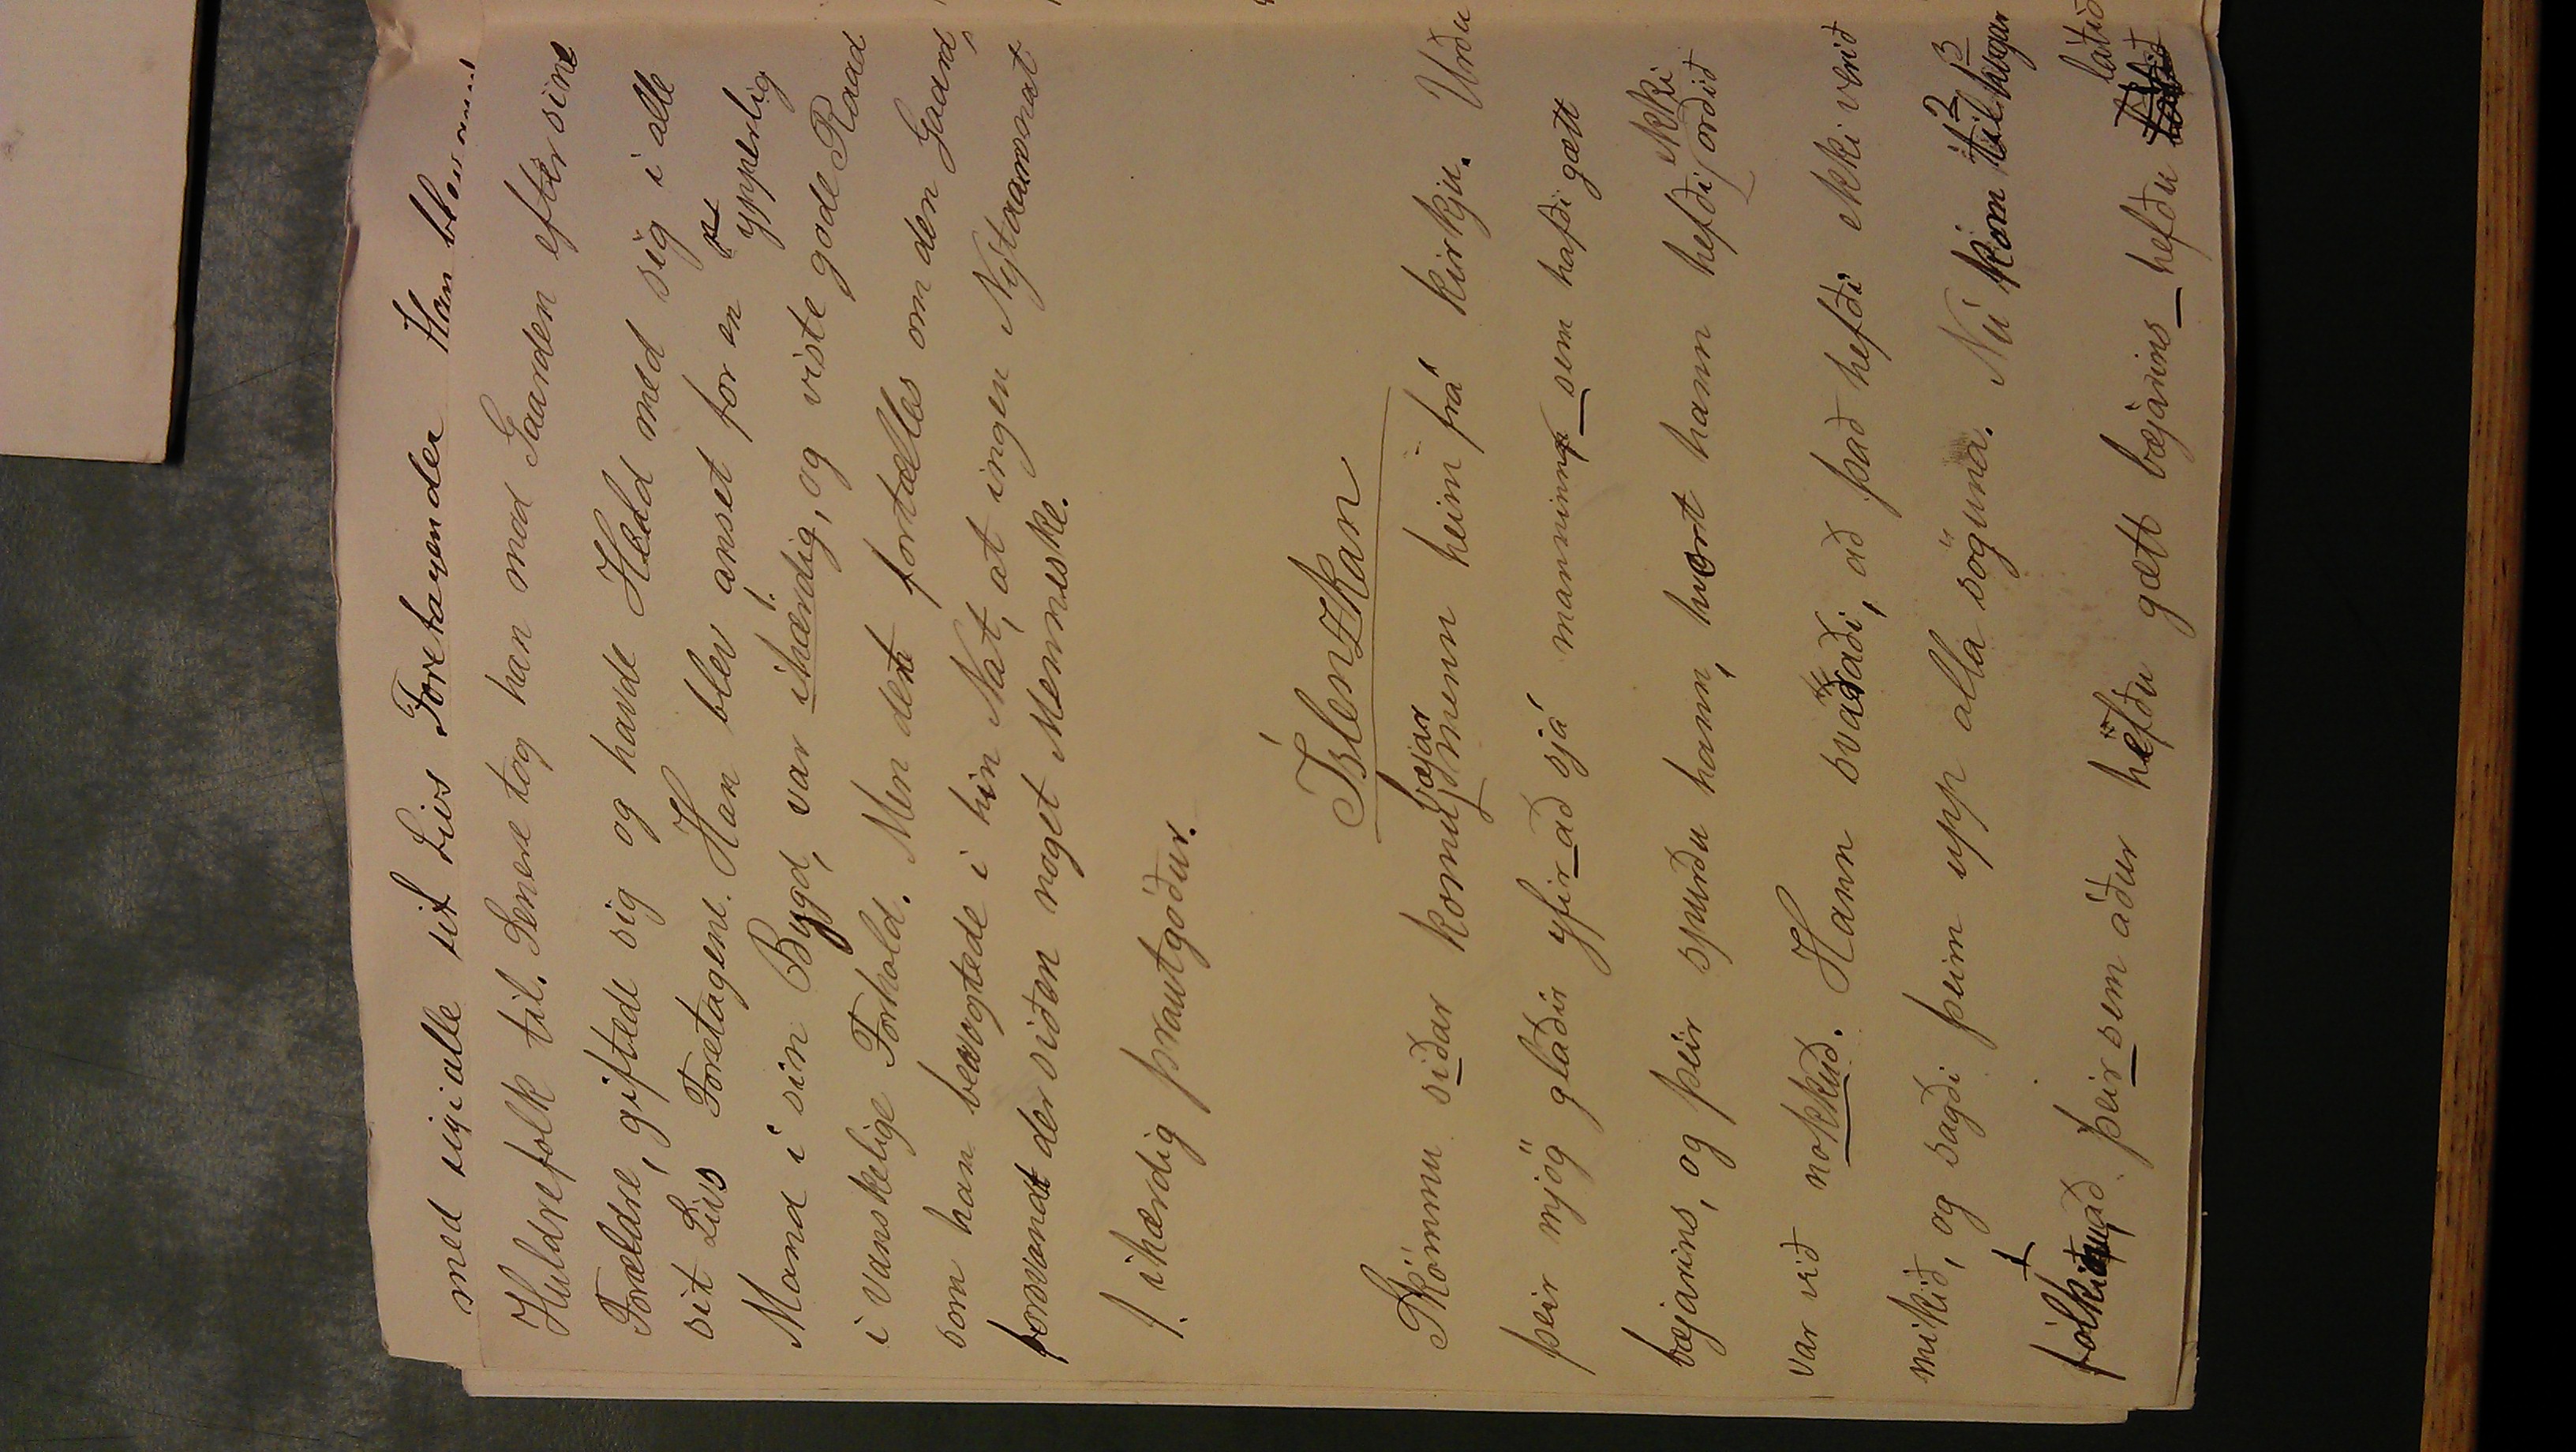 med sig i alle sit Livs Foretagender Han blev anset
Huldrefolk til. Senere tog han mod Gaarden efter sine
Forældre, giftede sig og havde Held med sig i alle
sit Livs Foretagene. Han blev anset for en ypperlig
Mand i sin Bygd, var ihærdig, 1. og viste gode Raad
i vanskelige Forhold. Men dett fortælles om den Gaard,
som han bevogtede i hin Nat, at ingen Nytaarsnat
forvandt der siðen noget Menneske.
1. ihærdig þrautgóður.
Íslenzkan
Skömmu siðar komu bæjarmenn heim frá kirkju. Urðu
þeir mjög glaðir yfir að sjá manninn sem hafði gætt
bæjarins, og þeir spurðu hann, hvort hann hefði ekki orðið
var við nokkuð. Hann svaraði, að það hefði ekki verið
mikið, og sagði þeim upp alla söguna. Nú kom til hugar
fólkið að þeir sem áður hefðu gætt bæjarins hefðu látið